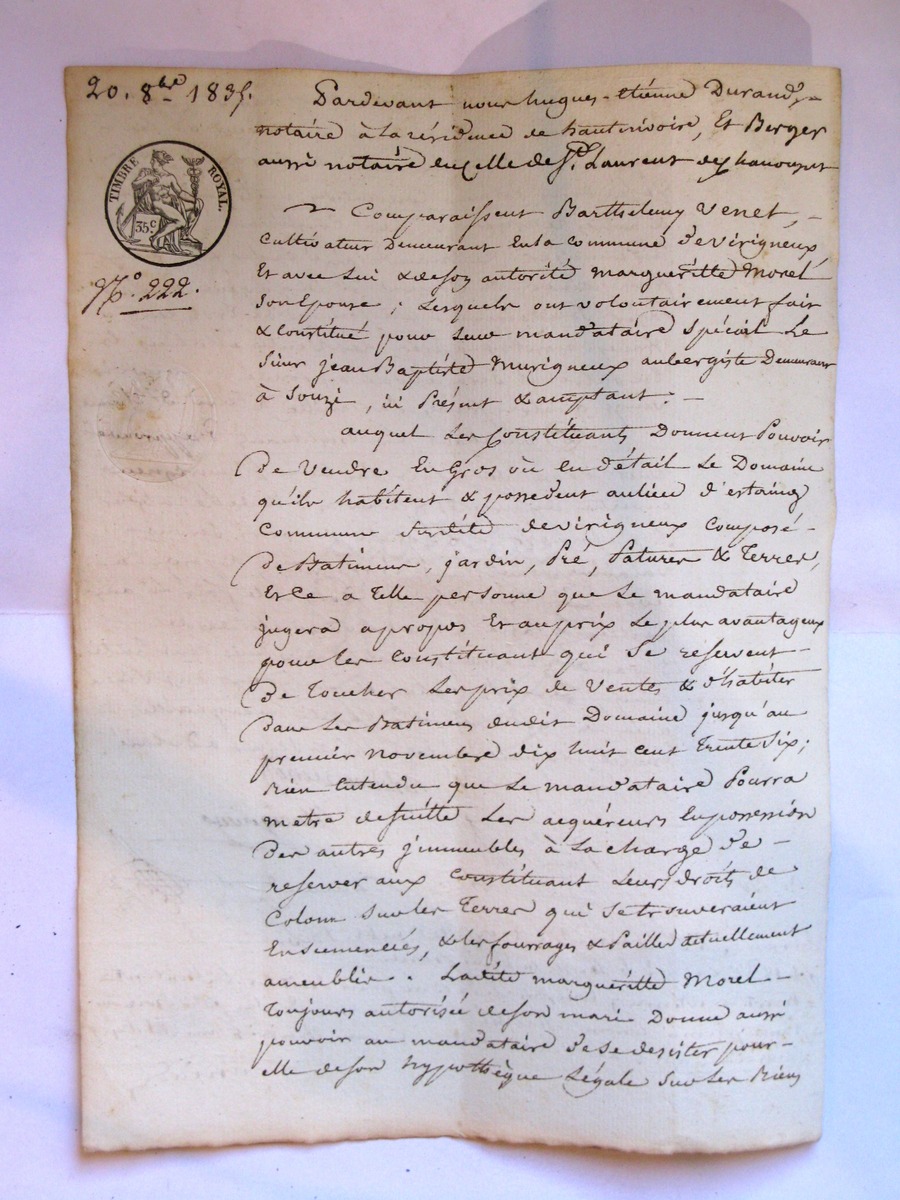 20. 8bre 1835.
TIMBRE ROYAL.
35c
No. 222.
Pardevant nous hugues-étienne Durand,
notaire à la résidence de hauterivoire, Et Berger
aussi notaire en celle de St. Laurent de chamousset
Comparaissent Barthelemy Venet,
Cultivateur Demeurant En la Commune de virigneux
Et avec Lui & de son autorité margueritte Morel
Son Epouse ; Lesquels ont volontairement fait
& Constitué pour Leur mandataire Spécial Le
Sieur jean Baptiste Murigneux aubergiste Demeurant
à Souzi, ici Présent & acceptant : -
auquel Les Constituants Donnent Pouvoir
De Vendre En Gros ou en détail Le Domaine
qu'ils habitent & possedent au lieu d'
Commune Susdite de virigneux Composé -
De Batimens, jardin, Pré, Patures & Terres,
Et Ce a Telle personne que Le mandataire
jugera apropos Et au prix Le plus avantageux
pour les Constituant qui Se réservent -
De Toucher Les prix de Ventes & d'habiter
Dans Les Batimens dudit Domaine jusqu'au
premier novembre dix huit cent Trente Six ;
Bien Entendu que Le mandataire Pourra
metre desuitte Les acquéreurs En possession
Des autres jmmeubles à La charge de -
reserver aux Constituant Leurs droits de
Colons Sur les Terres qui Se trouveraient
Ensemencées, & les fourrages & Pailles actuellement
ameublis. Ladite margueritte Morel -
Toujours autorisée de son mari Donne aussi
pouvoir au mandataire de se desister pour -
elle de son hypothèque Légale Sur Les Biens